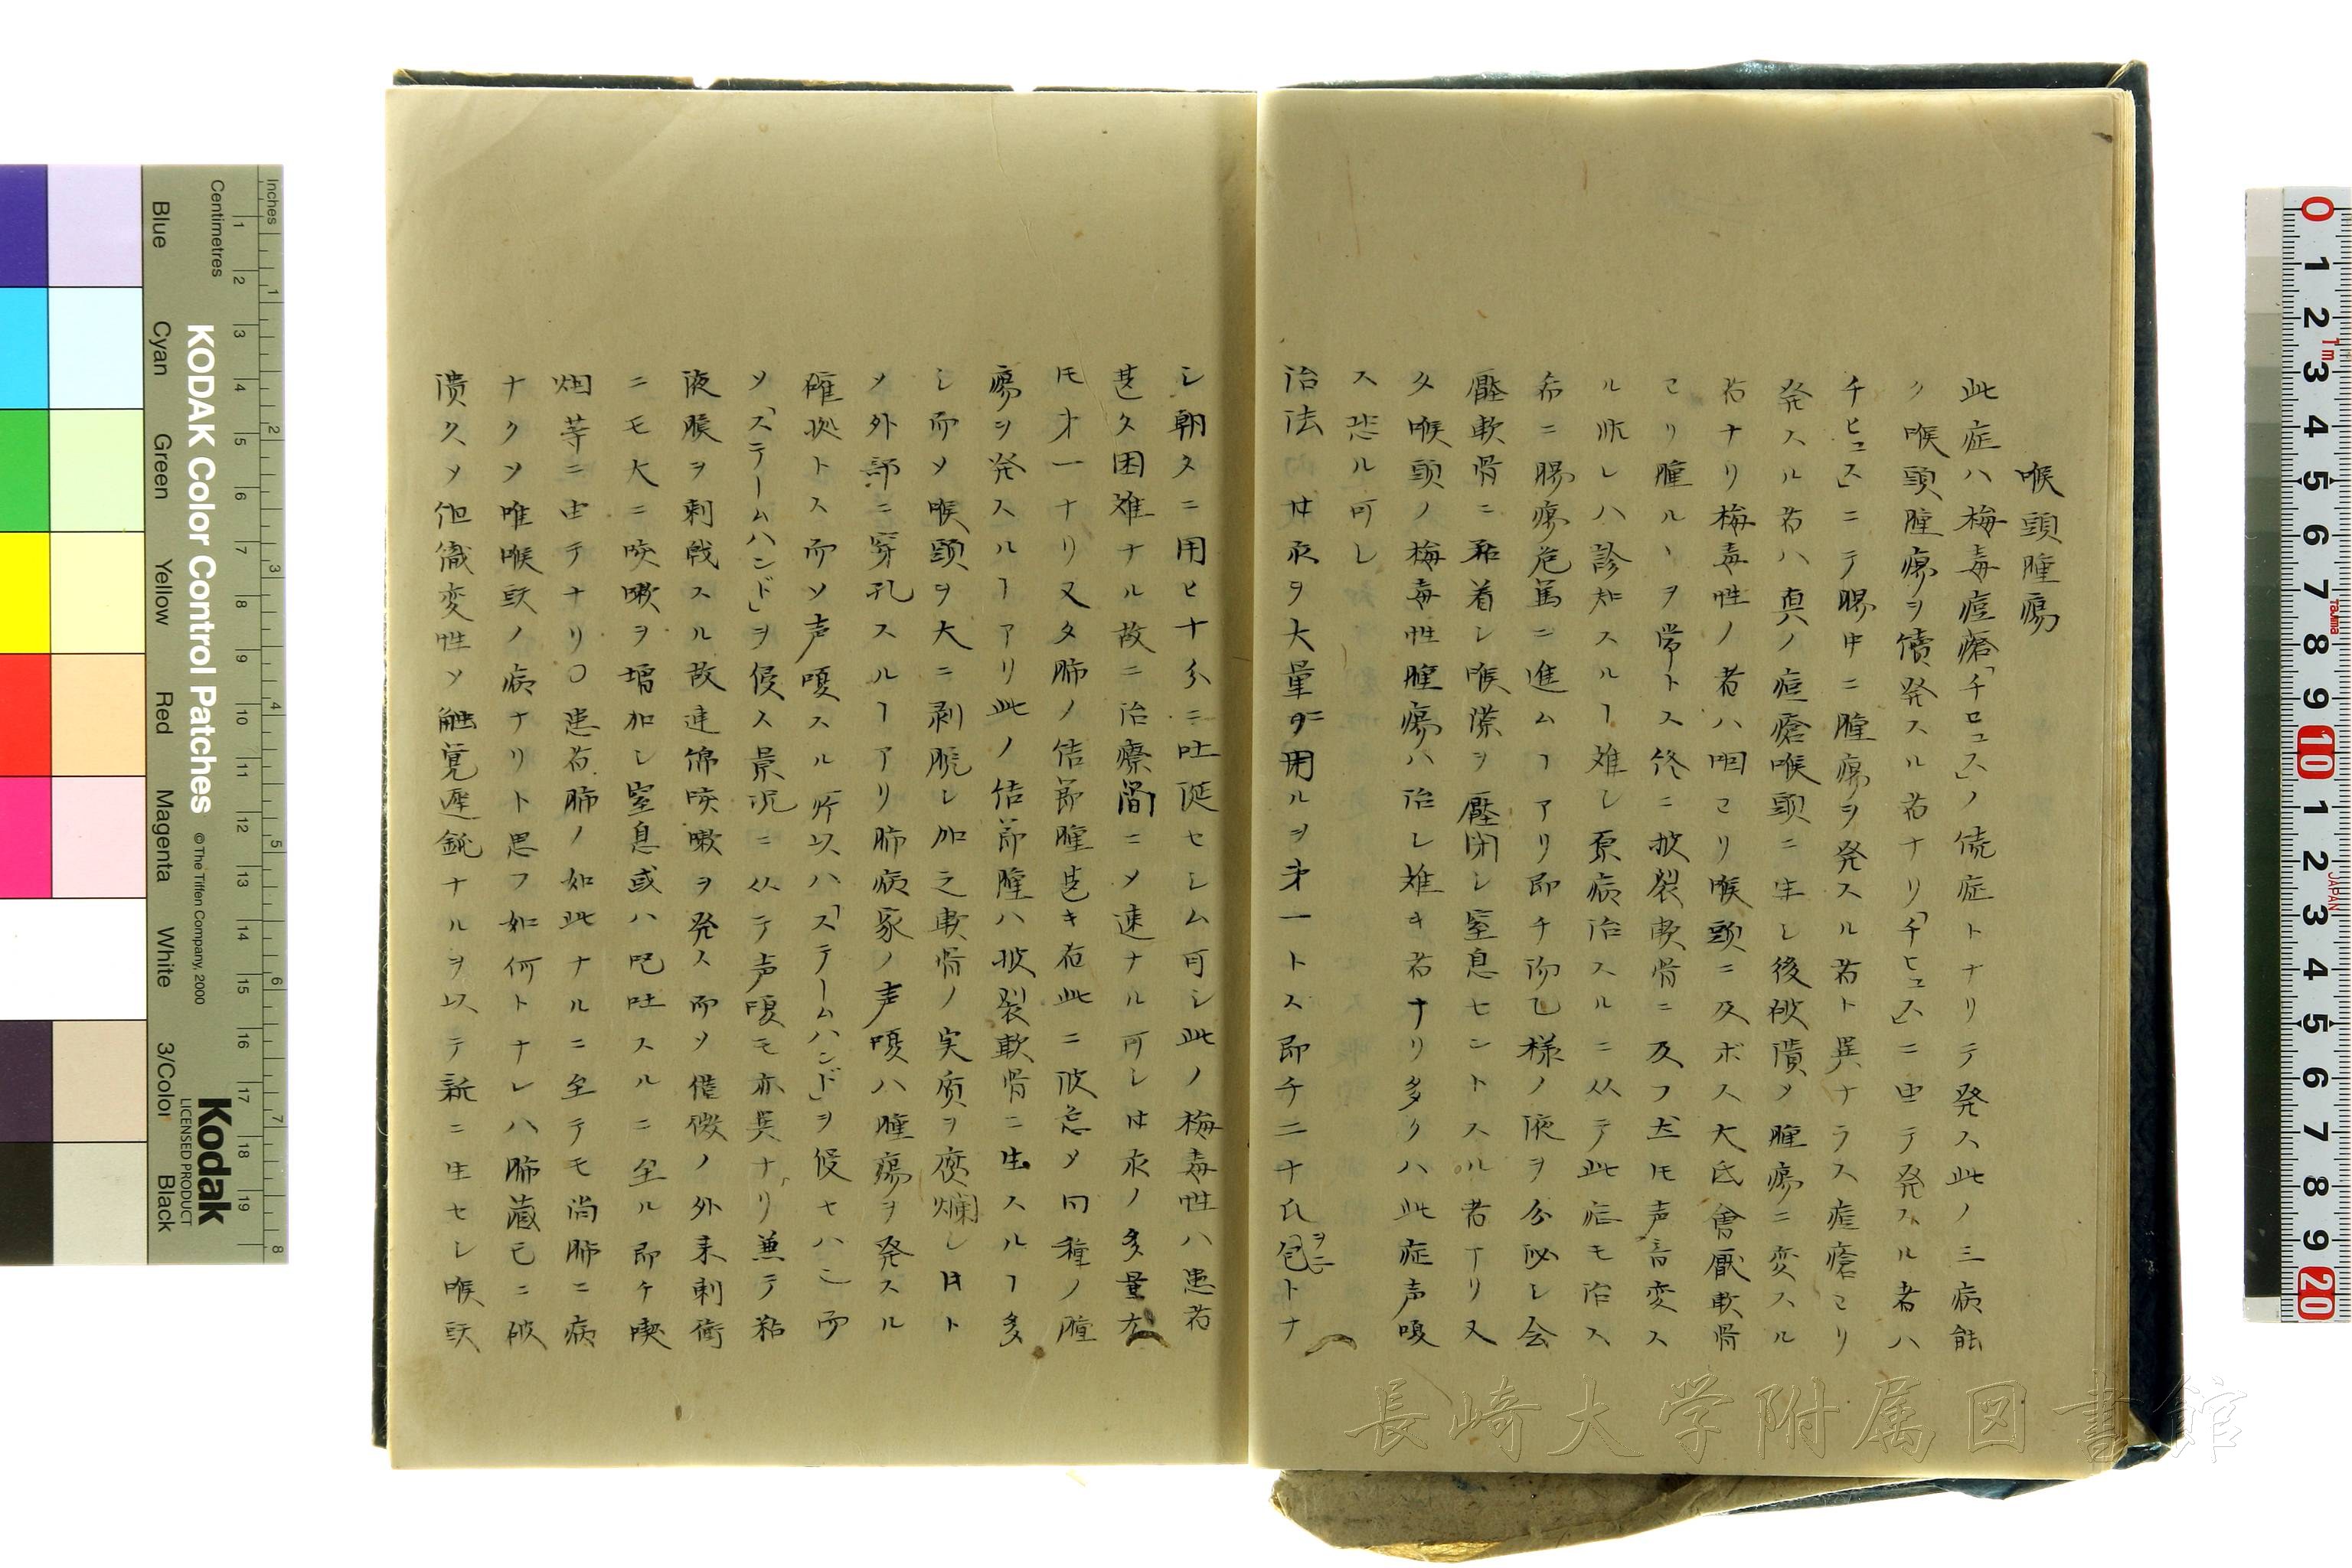 喉頭腫瘍
此症ハ梅毒痘瘡「チロュス」ノ続症トナリテ発ス此ノ三病能
ク喉頭腫瘍ヲ続発スル者ナリ「チヒュス」ニ由テ発スル者ハ
チヒュス」ニテ腸中ニ腫瘍ヲ発スル者ト異ナラス痘瘡ヨリ
発スル者ハ真ノ痘瘡喉頭ニ生シ後破潰メ腫瘍ニ変スル
者ナリ梅毒性ノ者ハ咽ヨリ喉頭ニ及ボス大氐會厭軟骨
ヨリ腫ルヽヲ常トス終ニ披裂軟骨ニ及フ𪜈声音変ス
ル𪜈シハ診知スルヿ難シ原病治スルニ从テ此症モ治ス
希ニ腸瘍危篤ニ進ムヿアリ即チ様ノ液ヲ分泌シ会
壓軟骨ニ粘着シ喉ヲ壓閉シ窒息セントスル者アリ又
タ喉頭ノ梅毒性腫瘍ハ治シ難キ者ナリ多クハ此症声嗄
ス恐ル可シ
治法 ヲ大量ニ用ルヲ第一トス即チ二十氏ヲ二包トナ
シ朝夕ニ用ヒ十分ニ吐涎セシム可シ此ノ梅毒性ハ患者
甚タ困難ナル故ニ治療間ニメ速ナル可シノ多量方
𪜈才一ナリ又タ肺ノ結節腫甚キ者此ニ波及メ同種ノ腫
瘍ヲ発スルヿアリ此ノ結節腫ハ披裂軟骨ニ生スルヿ多
シ而メ喉頭ヲ大ニ剥脱シ加之軟骨ノ実質ヲ腐爛シ日ト
メ外部ニ穿孔スルヿアリ肺病家ノ声嗄ハ腫瘍ヲ発スル
確状トス而メ声嗄スル所以ハ「ステームハンド」ヲ侵セハニ而
メ「ステームハンド」ヲ侵ス景况ニ从テ声嗄モ亦異ナリ兼テ粘
液膜ヲ刺戟スル故連綿咳嗽ヲ発ス而メ僅微ノ外来刺衝
ニモ大ニ咳嗽ヲ増加シ窒息或ハ吐スルニ至ル即チ喫
烟等ニ由テナリ〇患者肺ノ如此ナルニ至テモ尚肺ニ病
ナクメ唯喉頭ノ病ナリト思フ如何トナレハ肺臓已ニ破
潰スメ但織変性メ觸覚遅鈍ナルヲ以テ新ニ生セシ喉頭
長崎大学附属図書館
KODAK Color Control Patches
© The Tiffen Company, 2000
Kodak
LICENSED PRODUCT
Inches
Centimetres
Blue Cyan Green Yellow Red Magenta White 3/Color Black
JAPAN